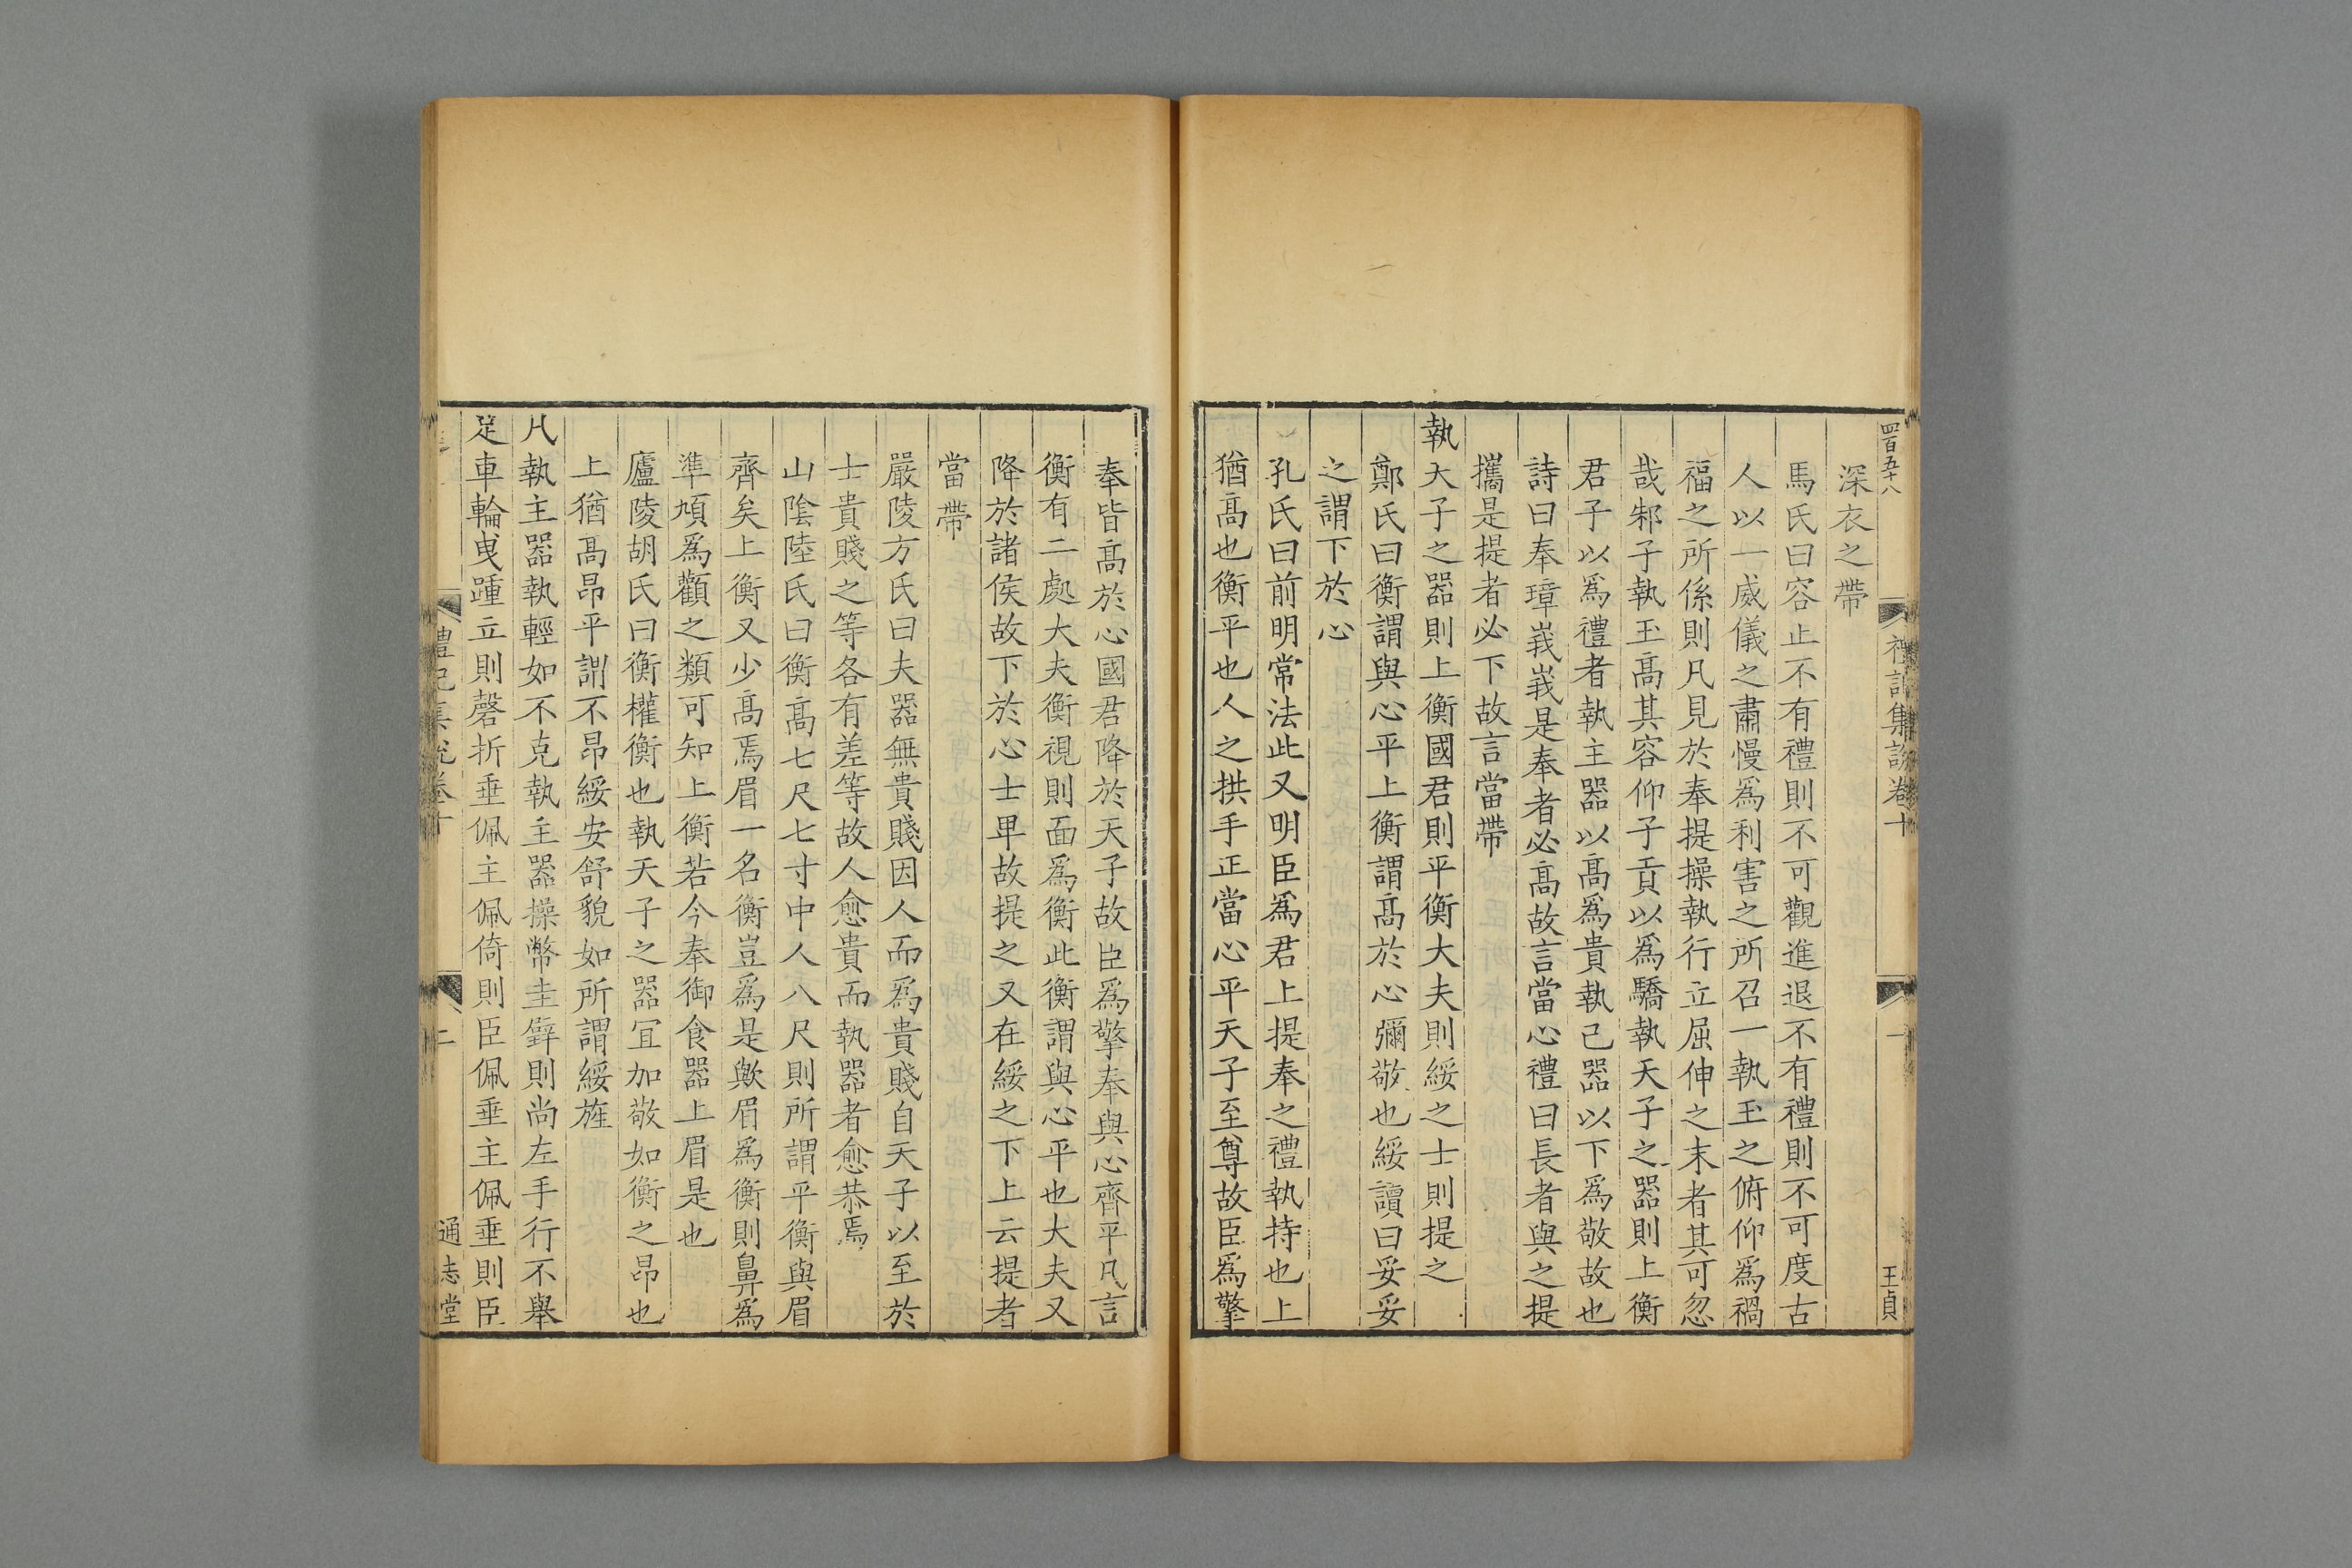 四百五十八
禮記集說卷十
一
王貞
深衣之帶
馬氏曰容止不有禮則不可觀進退不有禮則不可度古
人以一威儀之肅慢爲利害之所召一執玉之俯仰爲禍
福之所係則凡見於奉提操執行立屈伸之末者其可忽
哉邾子執玉髙其容仰子貢以爲驕執天子之器則上衡
君子以爲禮者執主器以髙爲貴執己器以下爲敬故也
詩曰奉璋峩峩是奉者必髙故言當心禮曰長者與之提
攜是提者必下故言當帶
執天子之器則上衡國君則平衡大夫則綏之士則提之
鄭氏曰衡謂與心平上衡謂髙於心彌敬也綏讀曰妥妥
之謂下於心
孔氏曰前明常法此又明臣爲君上提奉之禮執持也上
猶髙也衡平也人之拱手正當心平天子至尊故臣爲擎
奉皆髙於心國君降於天子故臣爲擎奉與心齊平凡言
衡有二處大夫衡視則面爲衡此衡謂與心平也大夫又
降於諸侯故下於心士卑故提之又在綏之下上云提者
當帶
嚴陵方氏曰夫器無貴賤因人而爲貴賤自天子以至於
士貴賤之等各有差等故人愈貴而執器者愈恭焉
山隂陸氏曰衡髙七尺七寸中人八尺則所謂平衡與眉
齊矣上衡又少髙焉眉一名衡豈爲是歟眉爲衡則鼻爲
準頄爲顴之類可知上衡若今奉御食器上眉是也
廬陵胡氏曰衡權衡也執天子之器宜加敬如衡之昂也
上猶髙昂平謂不昂綏安舒貌如所謂綏旌
凡執主器執輕如不克執主器操幣圭璧則尚左手行不舉
足車輪曳踵立則磬折垂佩主佩倚則臣佩垂主佩垂則臣
禮記集說卷十
二
通志堂